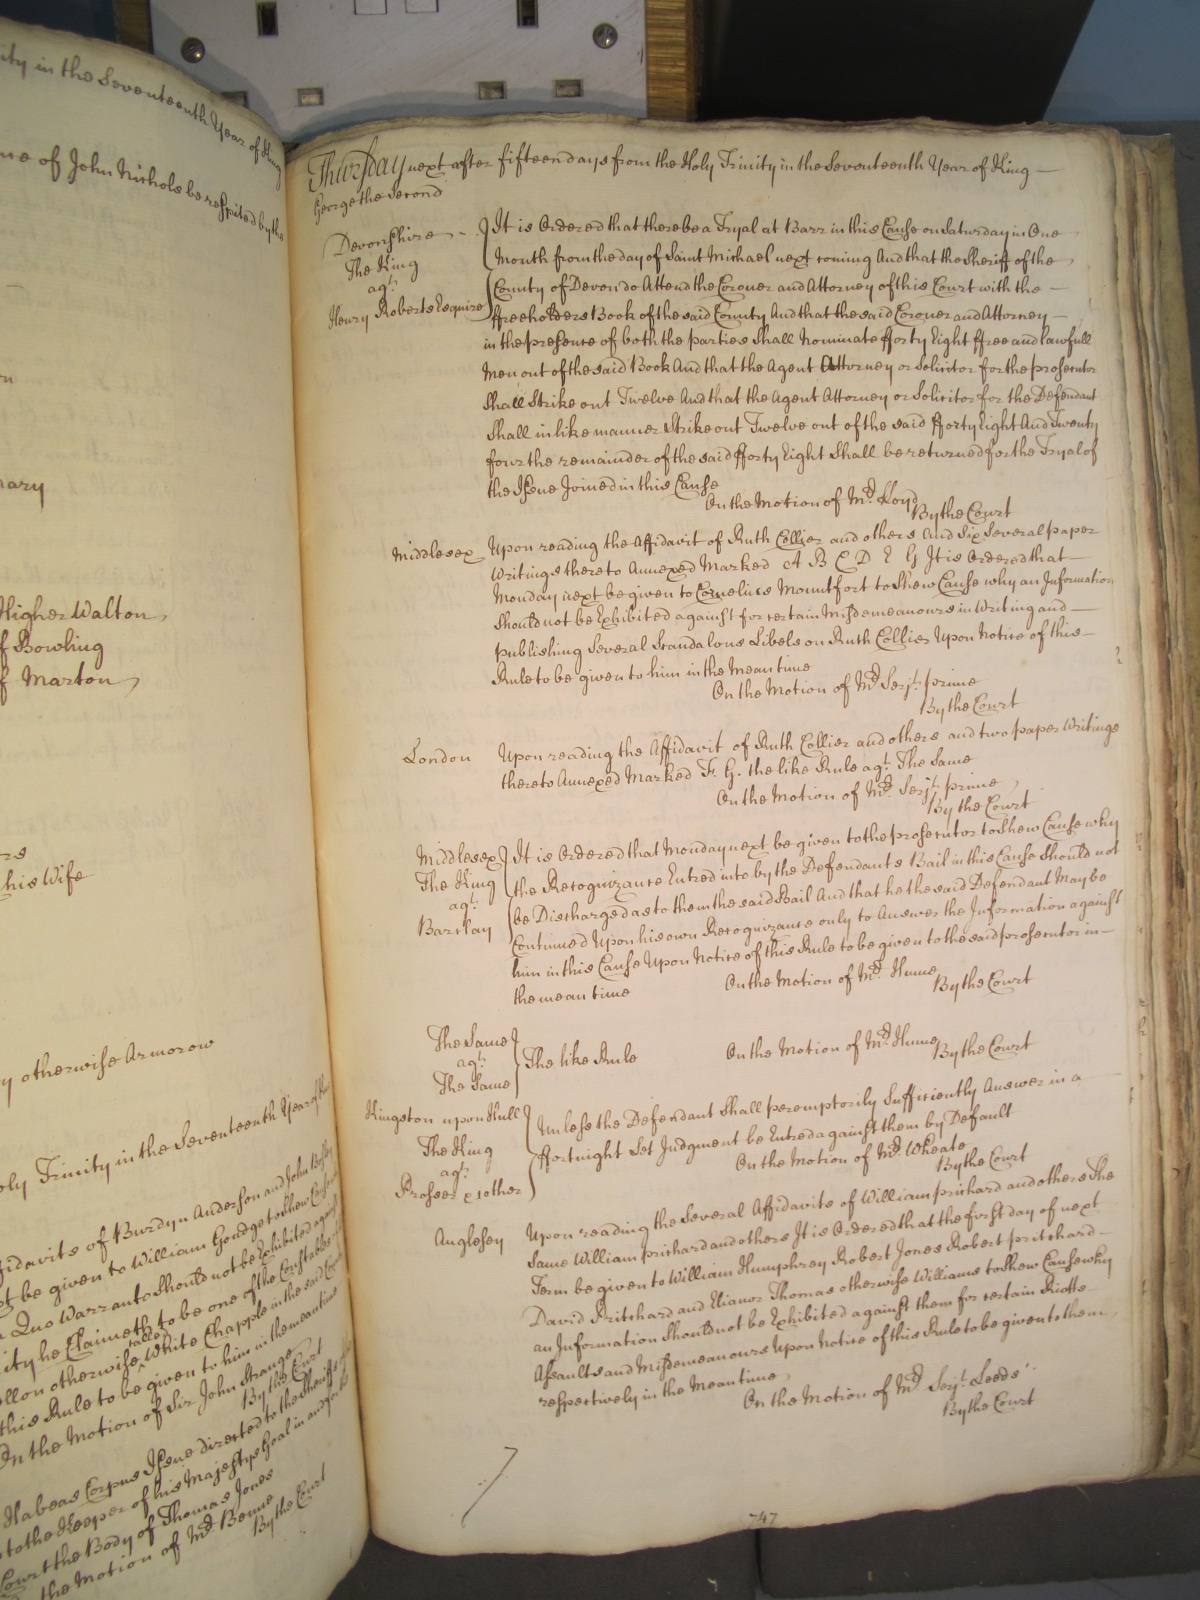 ity in the Seventeenth Year of King
me of John Nichols be respited by the
nary
Higher Walton
f Bowling
f Marton
rs
his Wife
y otherwise Armorow
oly Trinity in the Seventeenth Year of the
fidavits of Burdyn Anderson and John
xt be given to William Goudge to shew Cause
a Quo Warranto Should not be Exhibited against
ity he Claimeth to be one of the Constables
allon otherwise called White Chapple in the said County
this Rule to be given to him in the mean time
On the Motion of Sir John Strange
By the Court
Habeas Corpus Issue directed to the Sheriffs
to the Keeper of his Majestys Goal in and for
Court the Body of Thomas Jones
the Motion of Mr. Benne
By the Court
Thursday next after fifteen days from the Holy Trinity in the Seventeenth Year of King
George the Second
Devonshire
The King
agt.
Henry Roberts Esquire
It is Ordered that there be a Tryal at Barr in this Cause on Saturday in One
Month from the day of Saint Michael next coming And that the Sheriff of the
County of Devon do Attend the Coroner and Attorney of this Court with the
ffreeholders Book of the said County And that the said Coroner and Attorney
in the presence of both the parties Shall Nominate fforty Eight ffree and lawfull
Men out of the said Book And that the Agent Attorney or Solicitor for the prosecutor
Shall Strike out Twelve And that the Agent Attorney or Solicitor for the Defendant
Shall in like manner Strike out Twelve out of the said fforty Eight And Twenty
four the remainder of the said fforty Eight Shall be returned for the Tryal of
the Issue Joined in this Cause
On the Motion of Mr. Lloyd
By the Court
Middlesex
Upon reading the Affidavit of Ruth Collier and others And Six Several paper
Writings thereto Annexed Marked A B C D E G It is Ordered that
Monday next be given to Cornelius Mountfort to Shew Cause why an Information
Should not be Exhibited against for certain Misdemeanours in Writing and
publishing Several Scandalous Libels on Ruth Collier Upon Notice of this
Rule to be given to him in the Mean time
On the Motion of Mr. Serjt. prime
By the Court
London
Upon reading the Affidavit of Ruth Collier and others and two paper Writings
thereto Annexed Marked F. G. the like Rule agt. The Same
On the Motion of Mr. Serjt. prime
By the Court
Middlesex
The King
agt.
Barclay
It is Ordered that Monday next be given to the prosecutor to Shew Cause why
the Recognizance Entred into by the Defendants Bail in this Cause Should not
be Discharged as to them the said Bail And that he the said Defendant May be
Continued Upon his own Recognizance only to Answer the Information against
him in this Cause Upon Notice of this Rule to be given to the said prosecutor in
the mean time
On the Motion of Mr. Hume
By the Court
The Same
agt.
The Same
The like Rule
On the Motion of Mr. Hume
By the Court
Kingston upon Hull
The King
agt.
Prosser & other
Unless the Defendant Shall peremptorily Sufficiently Answer in a
ffortnight Let Judgment be Entred against them by Default
On the Motion of Mr. Wheate
By the Court
Anglesey
Upon reading the Several Affidavits of William prichard and others The
Same William prichard and others It is Ordered that the first day of next
Term be given to William Humphrey Robert Jones Robert pritchard
David Pritchard and Elianor Thomas otherwise Williams to Shew Cause why
an Information Should not be Exhibited against them for certain Riotts
Assaults and Misdemeanours Upon Notice of this Rule to be given to them
respectively in the Mean time
On the Motion of Mr. Serjt. Leeds
By the Court
747